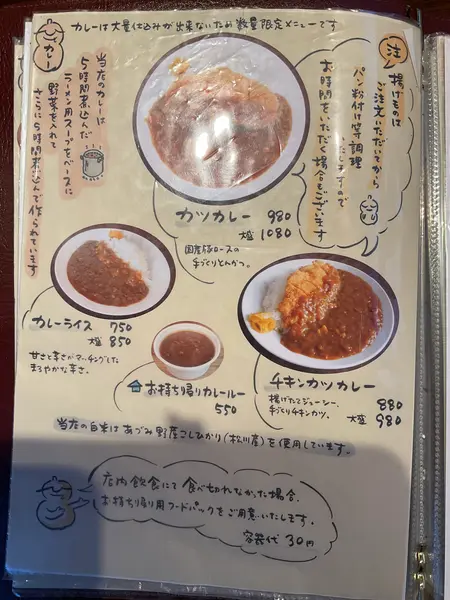 カレーは大量仕込みが出来ないため数量限定メニューです
カレー
当店のカレーは
5時間煮込んだ
ラーメン用スープをベースに
野菜を入れて
さらに5時間煮込んで作られています
注
揚げものは
ご注文いただいてから
パン粉付け等調理
いたしますので
お時間をいただく場合もございます
カツカレー 980
大盛 1080
国産豚ロースの
手づくりとんかつ。
カレーライス 750
大盛 850
甘さと辛さがマッチングした
まろやかな辛さ。
お持ち帰りカレールー
550
チキンカツカレー
880
揚げたてジューシー、
手づくりチキンカツ。
大盛 980
当店の白米はあづみ野産こしひかり(松川産)を使用しています。
店内飲食にて食べ切れなかった場合、
お持ち帰り用フードパックをご用意いたします。
容器代 30円